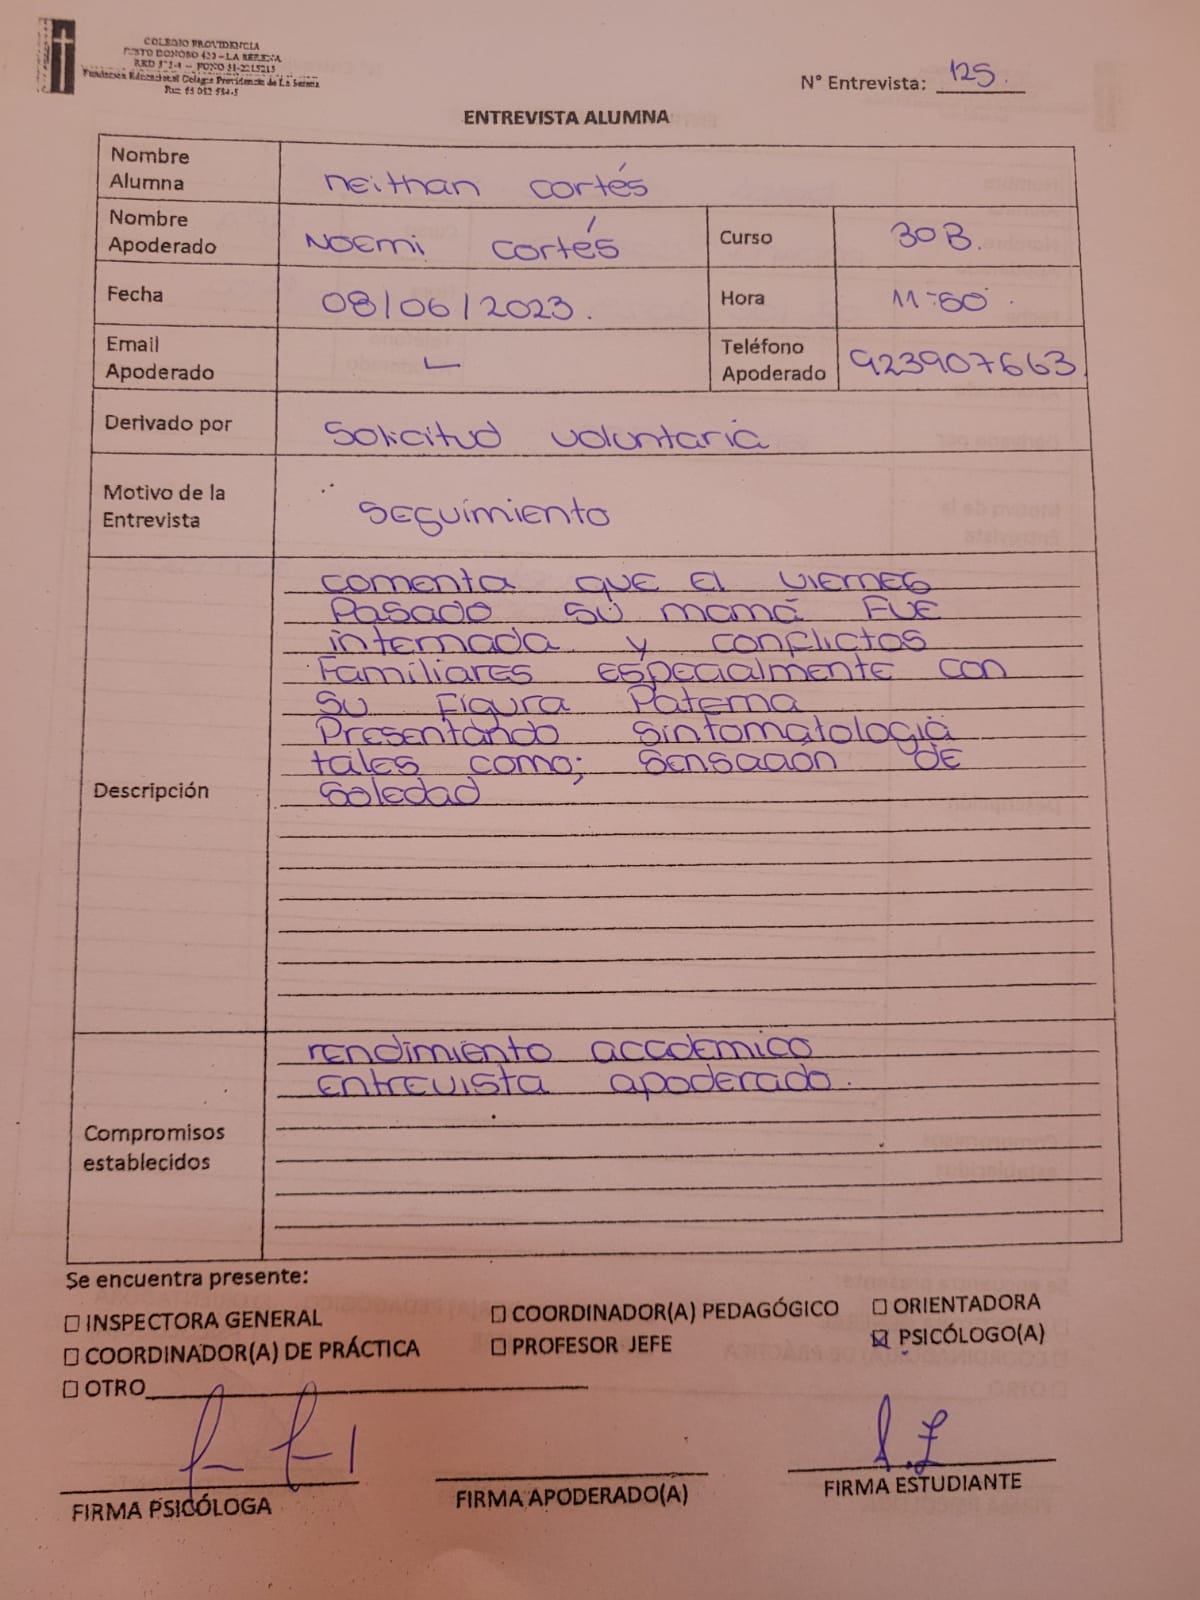 COLEGIO PROVIDENCIA
JUSTO DONOSO 420 – LA SERENA
Fundación Educacional Colegio Providencia de La Serena
N° Entrevista: 125.
ENTREVISTA ALUMNA
Nombre Alumna neithan cortés
Nombre Apoderado NOEMi cortés Curso 3ºB.
Fecha 08/06/2023. Hora 11:50.
Email Apoderado - Teléfono Apoderado 923907663
Derivado por Solicitud voluntaria
Motivo de la Entrevista seguimiento
Descripción
comenta que el viernes
Pasado su mamá FUE
internada y conflictos
Familiares especialmente con
su Figura Paterna
Presentando Sintomatologia
tales como; Sensación de
Soledad
Compromisos establecidos
rendimiento academico
entrevista apoderado.
Se encuentra presente:
☐ INSPECTORA GENERAL ☐ COORDINADOR(A) PEDAGÓGICO ☐ ORIENTADORA
☐ COORDINADOR(A) DE PRÁCTICA ☐ PROFESOR JEFE ☒ PSICÓLOGO(A)
☐ OTRO
FIRMA PSICÓLOGA FIRMA APODERADO(A) FIRMA ESTUDIANTE